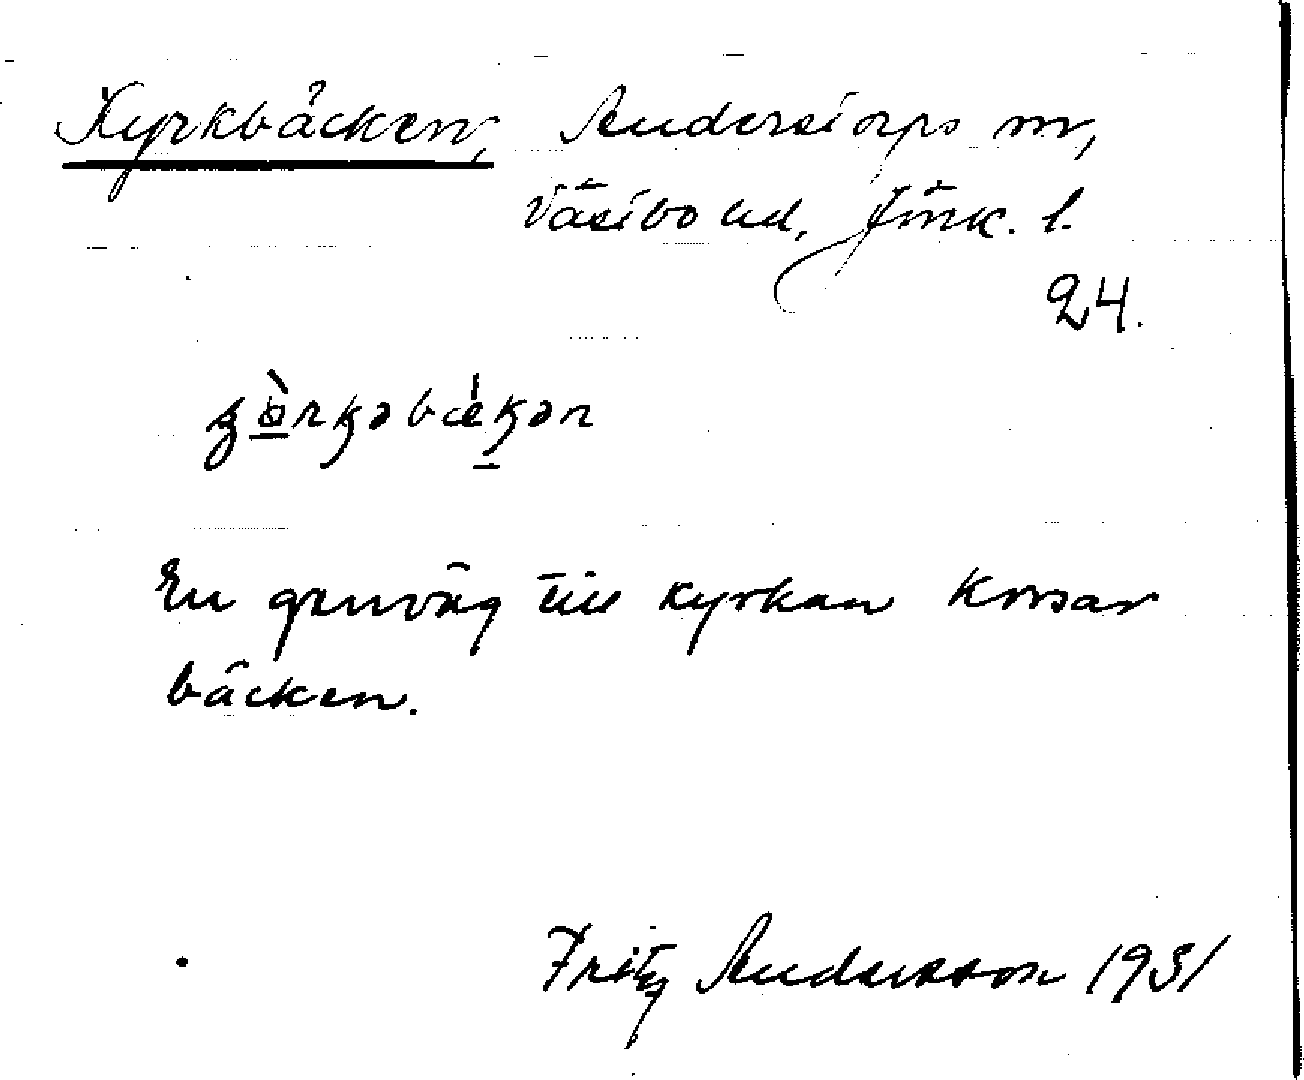 Kyrkbäcken, Anderstorps sn,
Västbo hd, Jönk. l.
24.
En genväg till kyrkan korsar
bäcken.
Fritz Andersson 1931